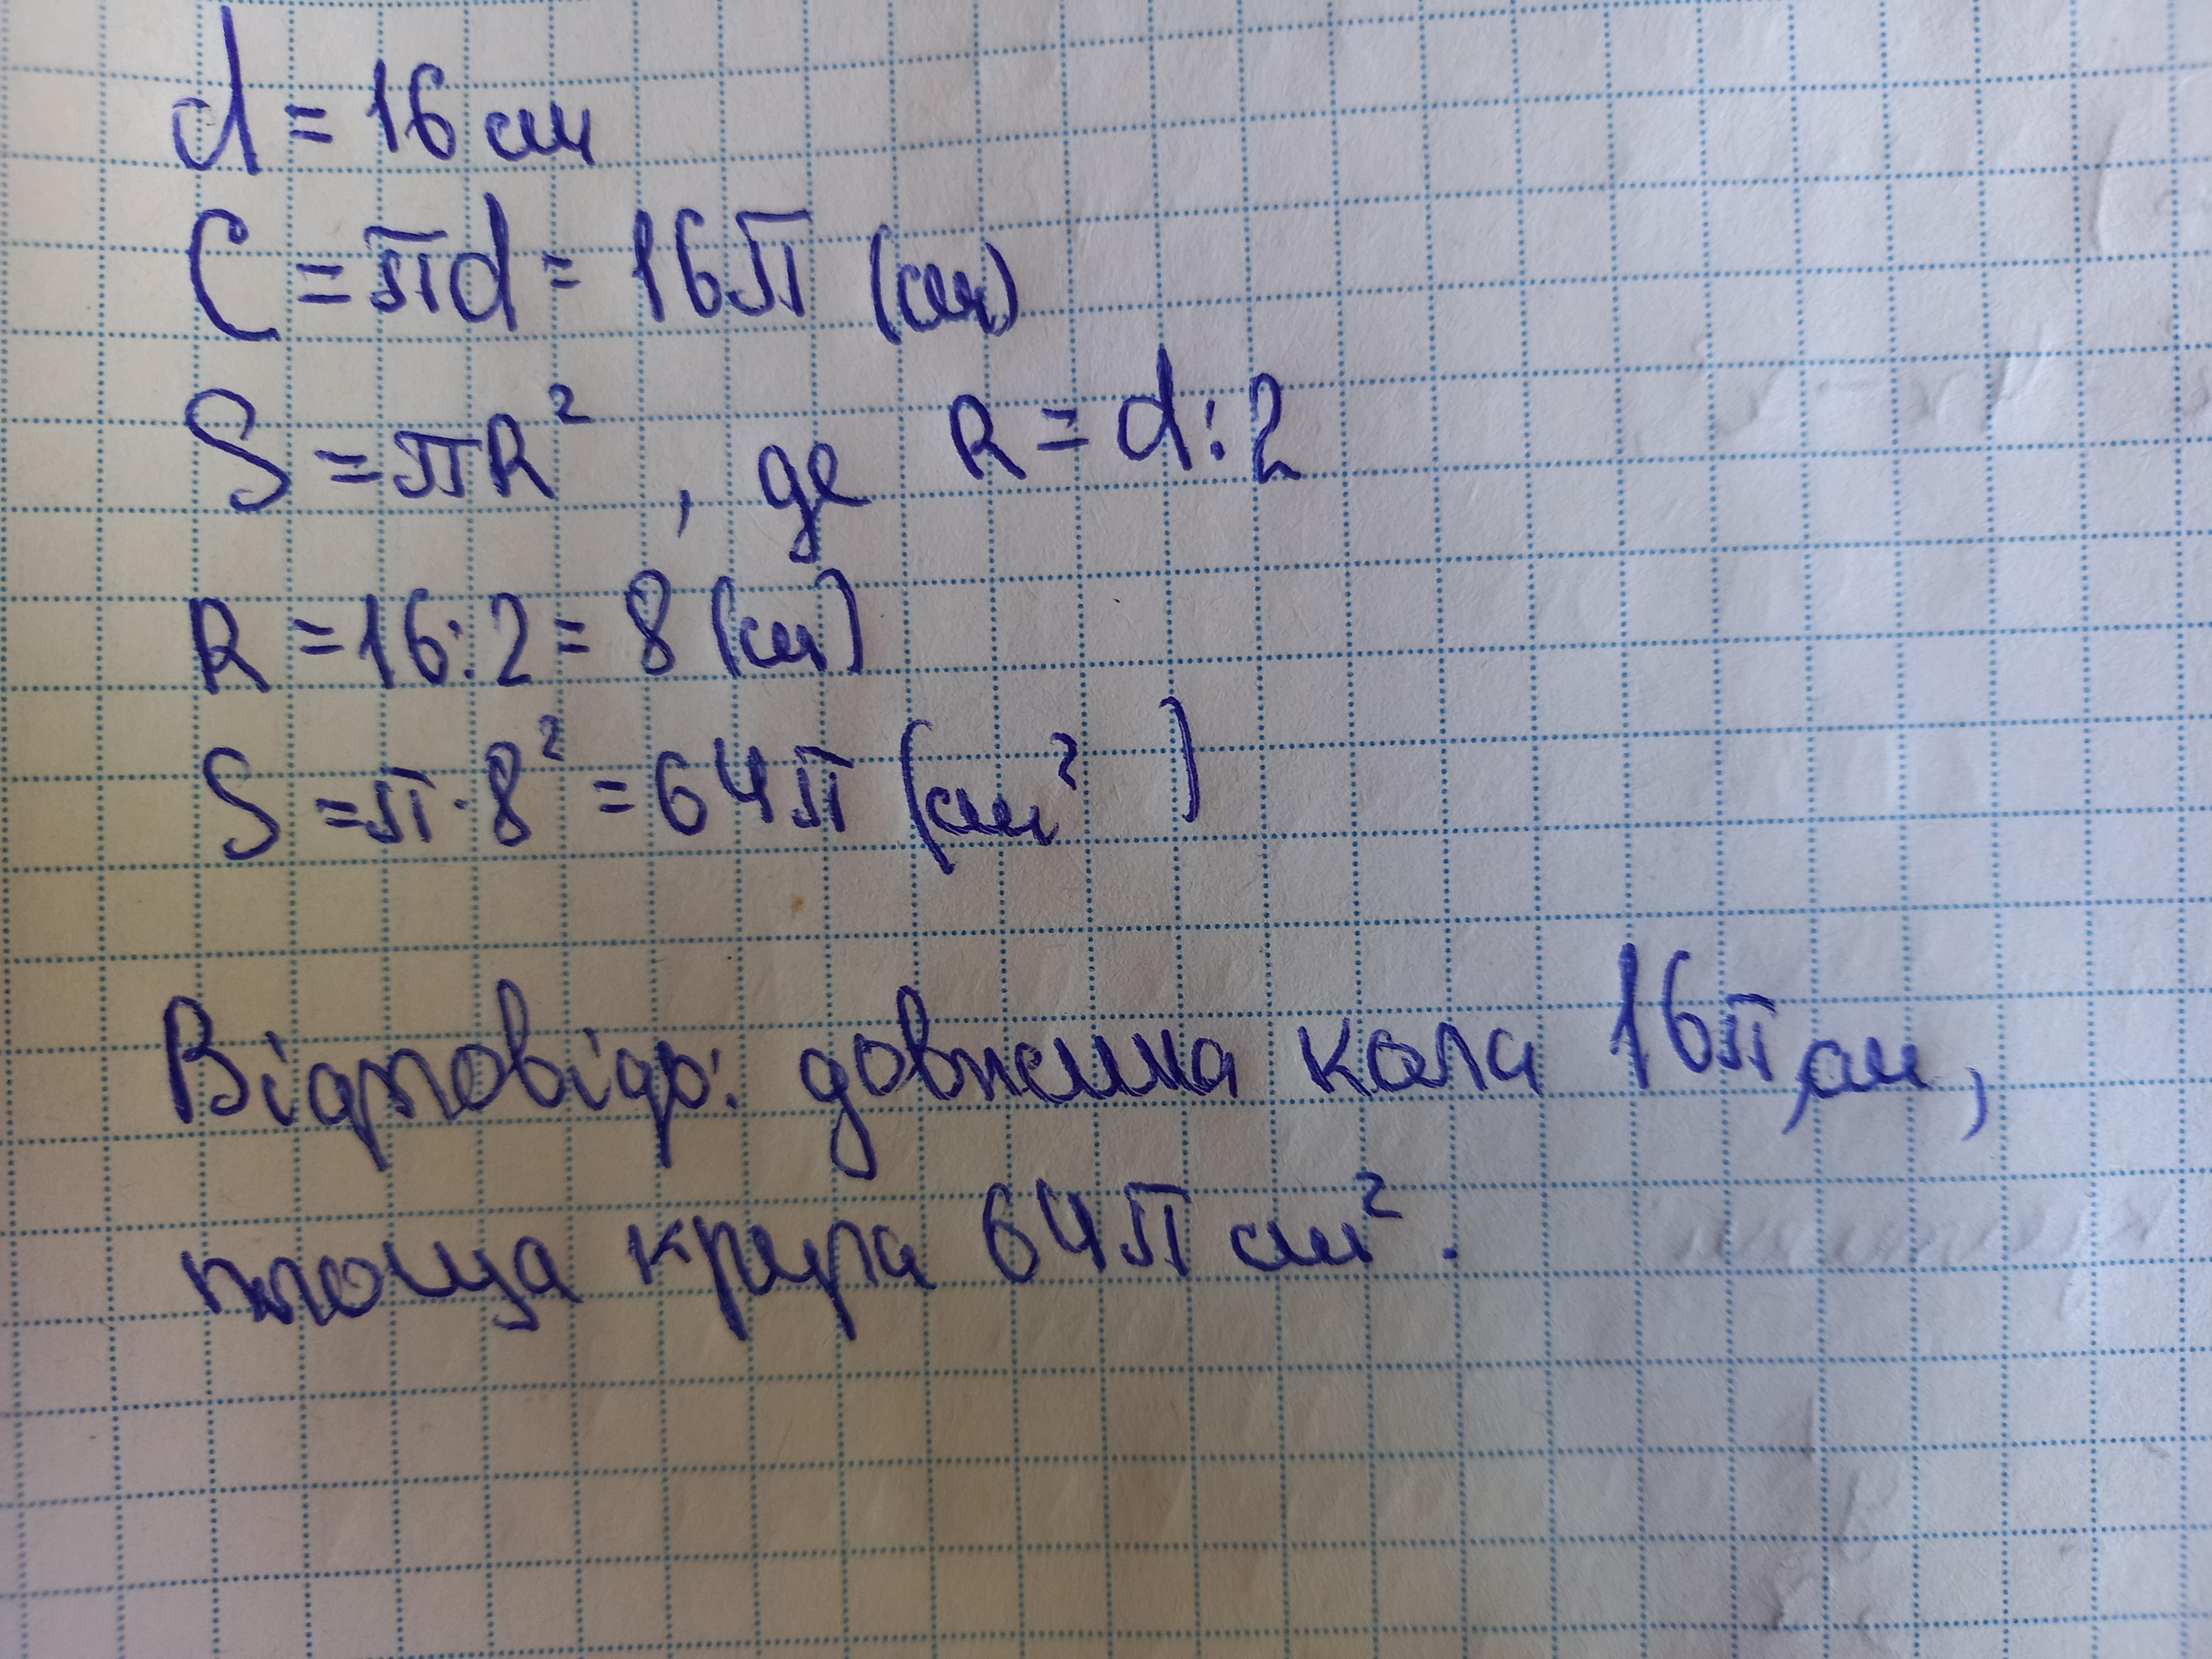 d = 16 см
C = πd = 16π (см)
S = πR² , де R = d : 2
R = 16 : 2 = 8 (см)
S = π · 8² = 64π (см²)
Відповідь: довжина кола 16π см,
площа круга 64π см².